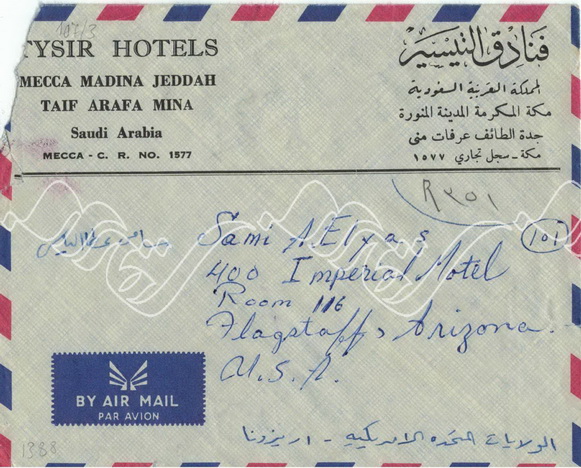 107/3
TYSIR HOTELS
MECCA MADINA JEDDAH
TAIF ARAFA MINA
Saudi Arabia
MECCA - C. R. NO. 1577
فنادق التيسير
المملكة العربية السعودية
مكة المكرمة المدينة المنورة
جدة الطائف عرفات منى
مكة - سجل تجاري ١٥٧٧
R ٣٥١
101
Sami A Elyas
400 Imperial Motel
Room 116
Flagstaff, Arizona.
U.S.A.
BY AIR MAIL
PAR AVION
الولايات المتحده الامريكيه - اريزونا
1388